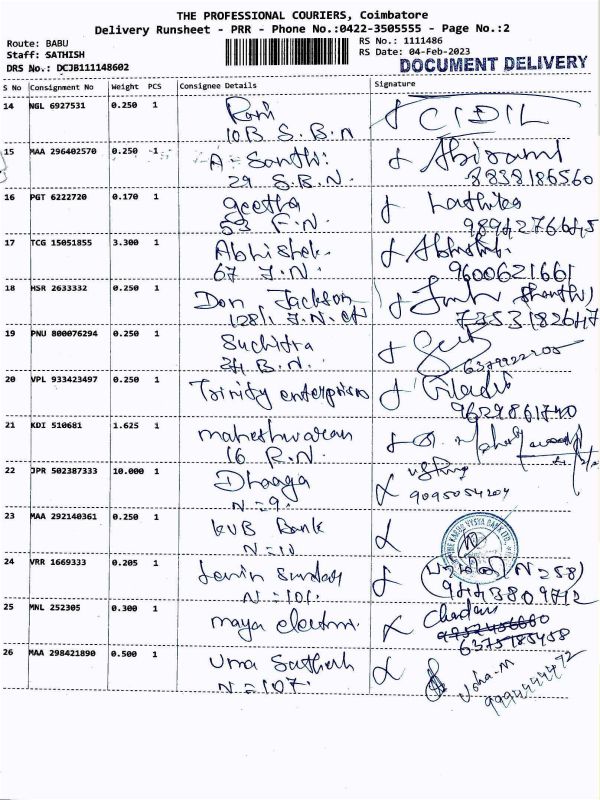 THE PROFESSIONAL COURIERS, Coimbatore
Delivery Runsheet - PRR - Phone No.:0422-3505555 - Page No.:2
Route: BABU
Staff: SATHISH
DRS No.: DCJB111148602
RS No.: 1111486
RS Date: 04-Feb-2023
DOCUMENT DELIVERY
S No Consignment No Weight PCS Consignee Details Signature
14 NGL 6927531 0.250 1 Rani CIDIL
10 B S.B.N
15 MAA 296402570 0.250 1 A. Santhi Abirami
29 S.B.N. 8838186560
16 PGT 6222720 0.170 1 Geetha
53 F.N. 9894276645
17 TCG 15051855 3.300 1 Abhishek Abhishek
67 J.N. 9600621661
18 HSR 2633332 0.250 1 Don Jackson
128/1 J.N. 7353182647
19 PNU 800076294 0.250 1 Suchitra
34 B.N. 6379922205
20 VPL 933423497 0.250 1 Trinity enterprises
9629861740
21 KDI 510681 1.625 1 maheshwaran
16 R.N.
22 JPR 502387333 10.000 1 Dhaaga
N=9. 9095054204
23 MAA 292140361 0.250 1 KVB Bank
N=10
24 VRR 1669333 0.205 1 Lenin Sunday (N=58)
N=101. 9443809712
25 MNL 252305 0.300 1 maya electm.
6375185458
26 MAA 298421890 0.500 1 Uma Sathesh Usha.M
N=107. 9994444472